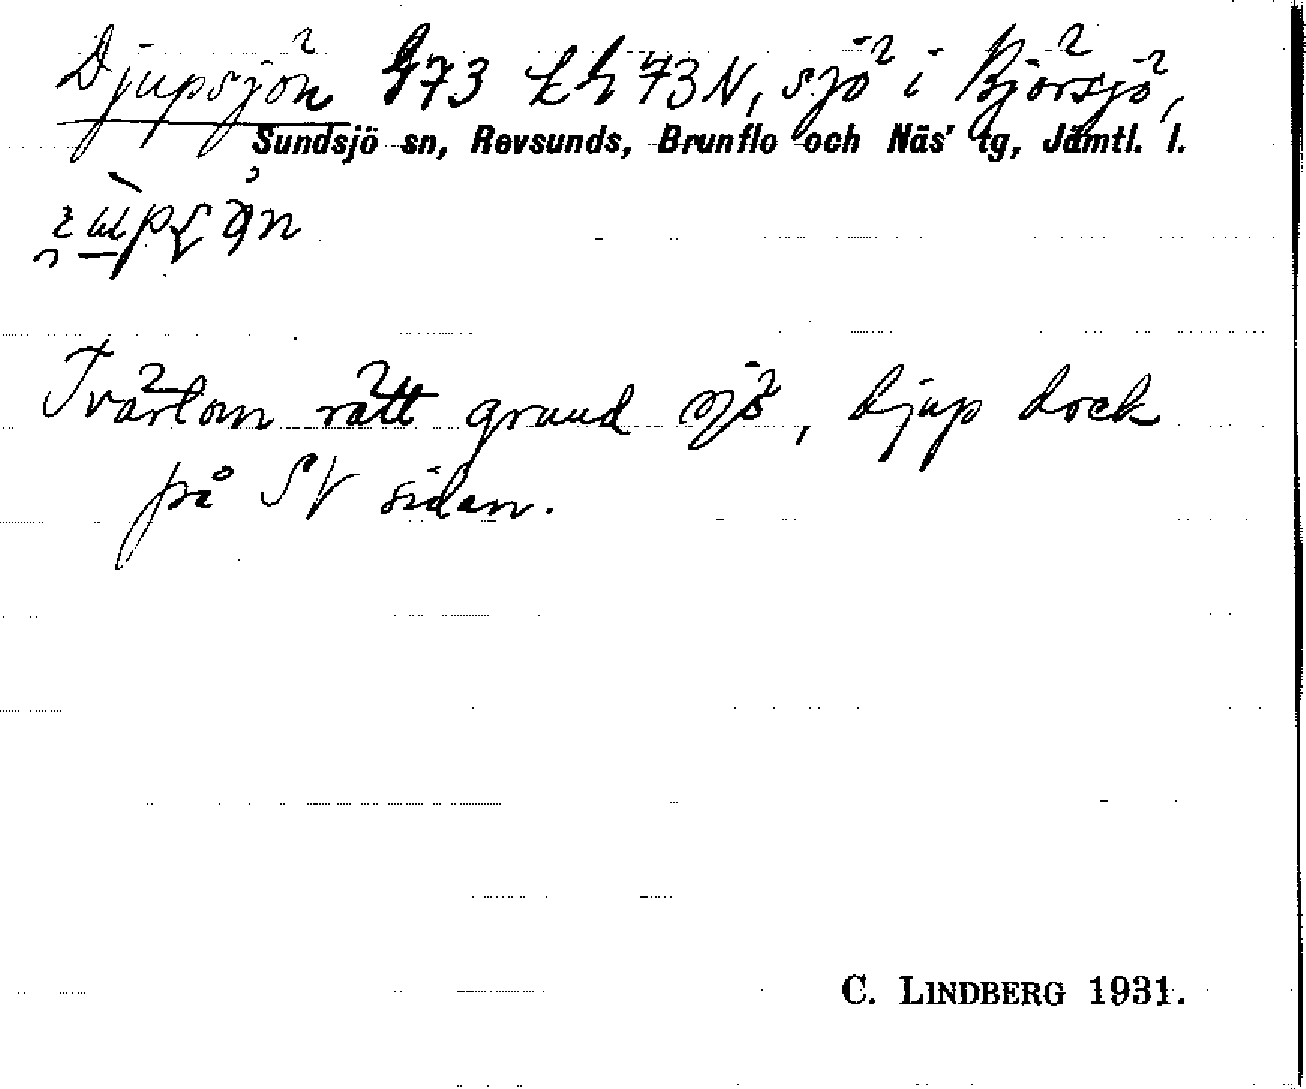 Djupsjön G73 Eh 73N, sjö i Björsjö,
Sundsjö sn, Revsunds, Brunflo och Näs' tg, Jämtl. l.
Tvärtom rätt grund sjö, djup dock
på SV sidan.
C. LINDBERG 1931.